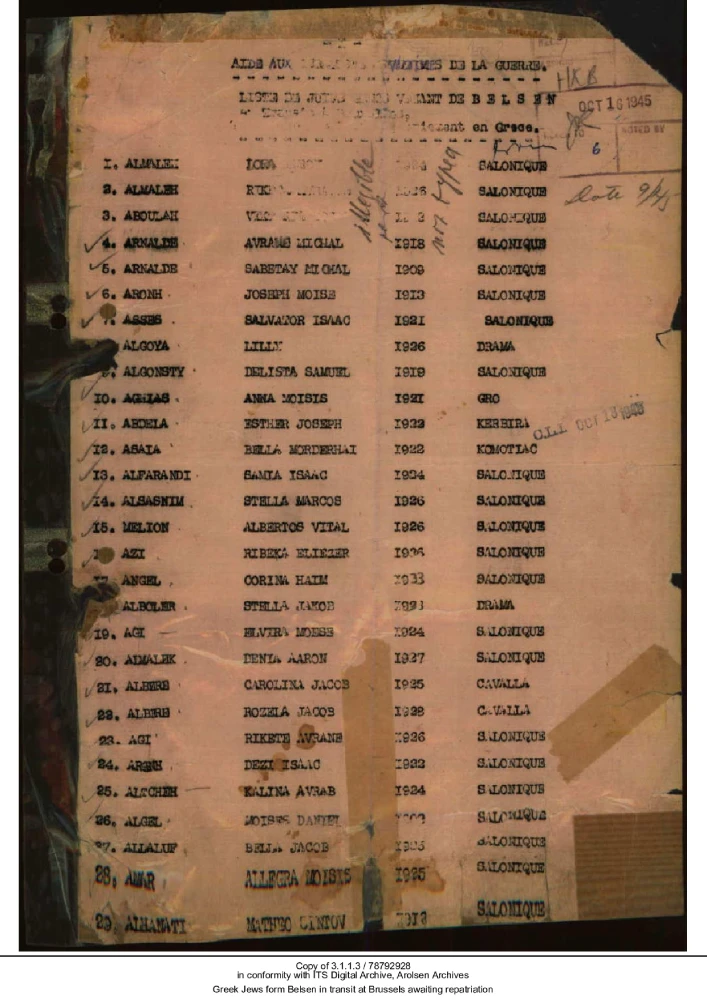 AIDE AUX DE LA GUERRE.
HKB
LISTE DE DE BELSEN
OCT 16 1945
NOTED BY
en Grece.
6
illegible
not typed
Date
1. ALMALEH SALONIQUE
2. ALMALEH SALONIQUE
3. ABOULAH SALONIQUE
4. ARNALDE AVRAME MICHAL 1918 SALONIQUE
5. ARNALDE SABETAY MICHAL 1909 SALONIQUE
6. ARONH JOSEPH MOISE 1913 SALONIQUE
7. ASSES SALVATOR ISAAC 1921 SALONIQUE
ALGOYA LILLY 1926 DRAMA
9. ALGONSTY DELISTA SAMUEL 1919 SALONIQUE
10. AGHIAS ANNA MOISIS 1921 GRC
11. ABDELA ESTHER JOSEPH 1922 KERKIRA
O.I.I. OCT 13 1945
12. ASAIA BELLA MORDERHAI 1922 KOMOTIAC
13. ALFARANDI SAMIA ISAAC 1924 SALONIQUE
14. ALSASNIM STELLA MARCOS 1926 SALONIQUE
15. MELION ALBERTOS VITAL 1926 SALONIQUE
AZI RIBEKA ELIEZER SALONIQUE
17. ANGEL CORINA HAIM SALONIQUE
ALBOLER STELLA JAKOB DRAMA
19. AGI ELVIRA MOESE 1924 SALONIQUE
20. ALMALEK DENIA AARON 1927 SALONIQUE
21. ALBERE CAROLINA JACOB 1925 CAVALLA
22. ALBERE ROZELA JACOB 1928 CAVALLA
23. AGI RIKETE AVRANE 1926 SALONIQUE
24. AREEH DEZI ISAAC 1922 SALONIQUE
25. ALTCHEH KALINA AVRAB 1924 SALONIQUE
26. ALGEL MOISES DANIEL SALONIQUE
27. ALLALUF BELLA JACOB SALONIQUE
28. AMAR ALLEGRA MOISIS 1925 SALONIQUE
29. ALHANATI MATHEO SINTOV SALONIQUE
Copy of 3.1.1.3 / 78792928
in conformity with ITS Digital Archive, Arolsen Archives
Greek Jews form Belsen in transit at Brussels awaiting repatriation